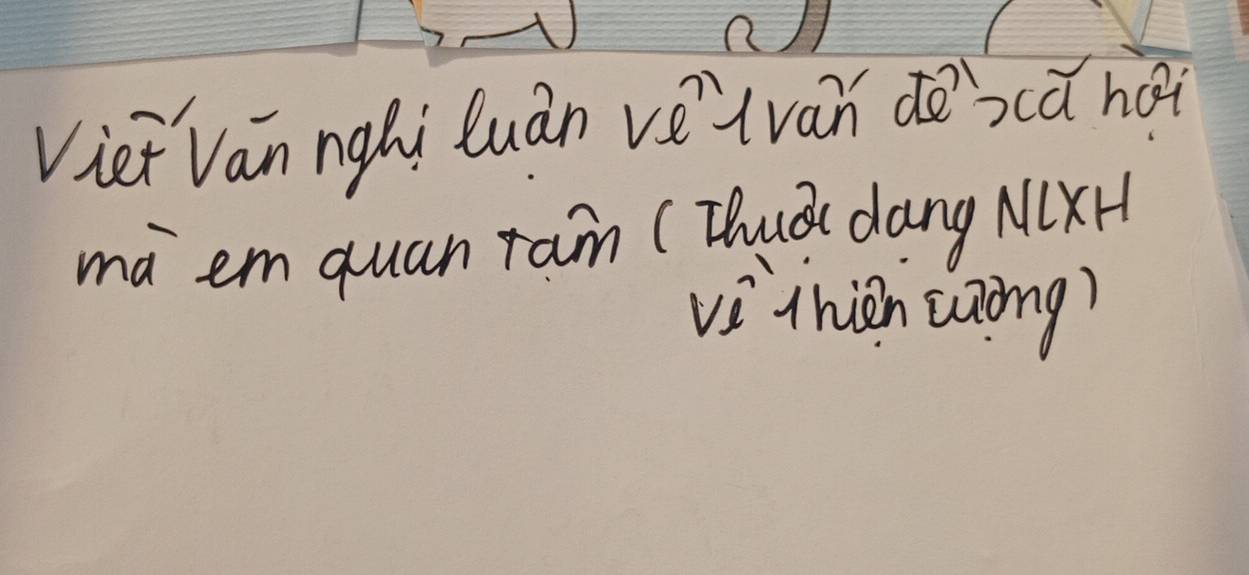 Viết Văn nghị luận về 1 vấn đề xã hội
mà em quan tâm (Thuộc dạng NLXH
về 1 hiện tượng)